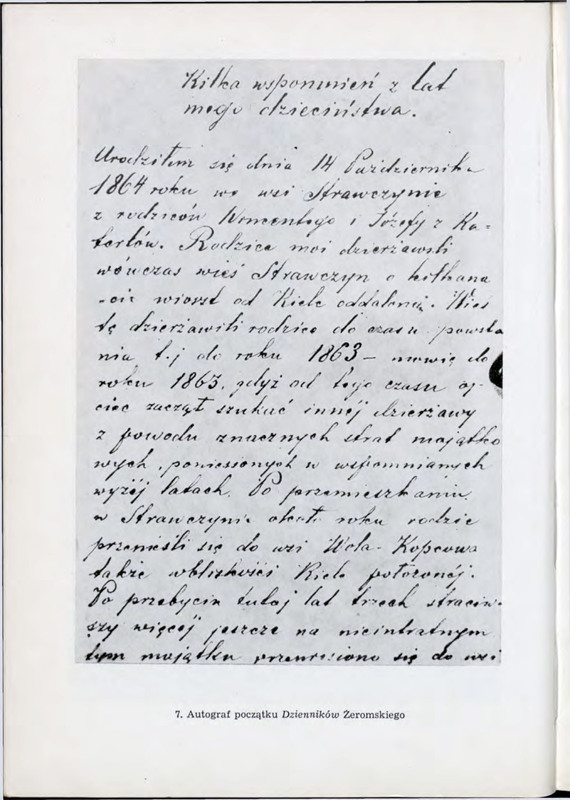 Kilka wspomnień z lat
mego dzieciństwa.
Urodziłem się dnia 14 Października
1864 roku we wsi Strawczynie
z rodziców Wincentego i Józefy z Ka-
terlów. Rodzice moi dzierżawili
wówczas wieś Strawczyn o kilkana
-cie wiorst od Kielc oddaloną. Wieś
tę dzierżawili rodzice do czasu powsta
nia t.j do roku 1863 — mówię do
roku 1863, gdyż od tego czasu oj-
ciec zaczął szukać innéj dzierżawy
z powodu znacznych strat majątko
wych, poniesionych w wspomnianych
wyżéj latach. Po przemieszkaniu
w Strawczynie około roku rodzice
przenieśli się do wsi Wola-Kopcowa
także wblizkości Kielc położonéj.
Po przebyciu tutaj lat trzech straciw-
szy więcéj jeszcze na nieintratnym
tym majątku przeniesiono się do wsi
7. Autograf początku Dzienników Żeromskiego